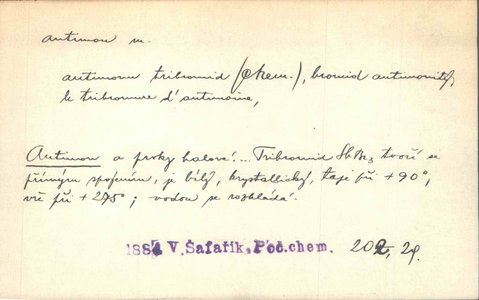 antimon m.
antimonu tribromid (chem.), bromid antimonitý,
le tribromure d'antimoine,
Antimon a prvky halové:.. Tribromid SbBr₃ tvoří se
přímým spojením, je bílý, krystallický, taje při +90°,
vře při +275°; vodou se rozkládá.
188 V. Šafařík, Poč. chem. 202, 29.